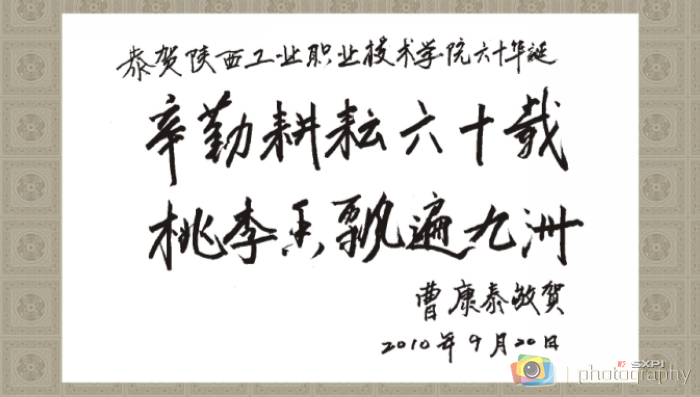 恭贺陕西工业职业技术学院六十华诞
辛勤耕耘六十载
桃李香飘遍九洲
曹康泰敬贺
2010年9月20日
SXPI
photography